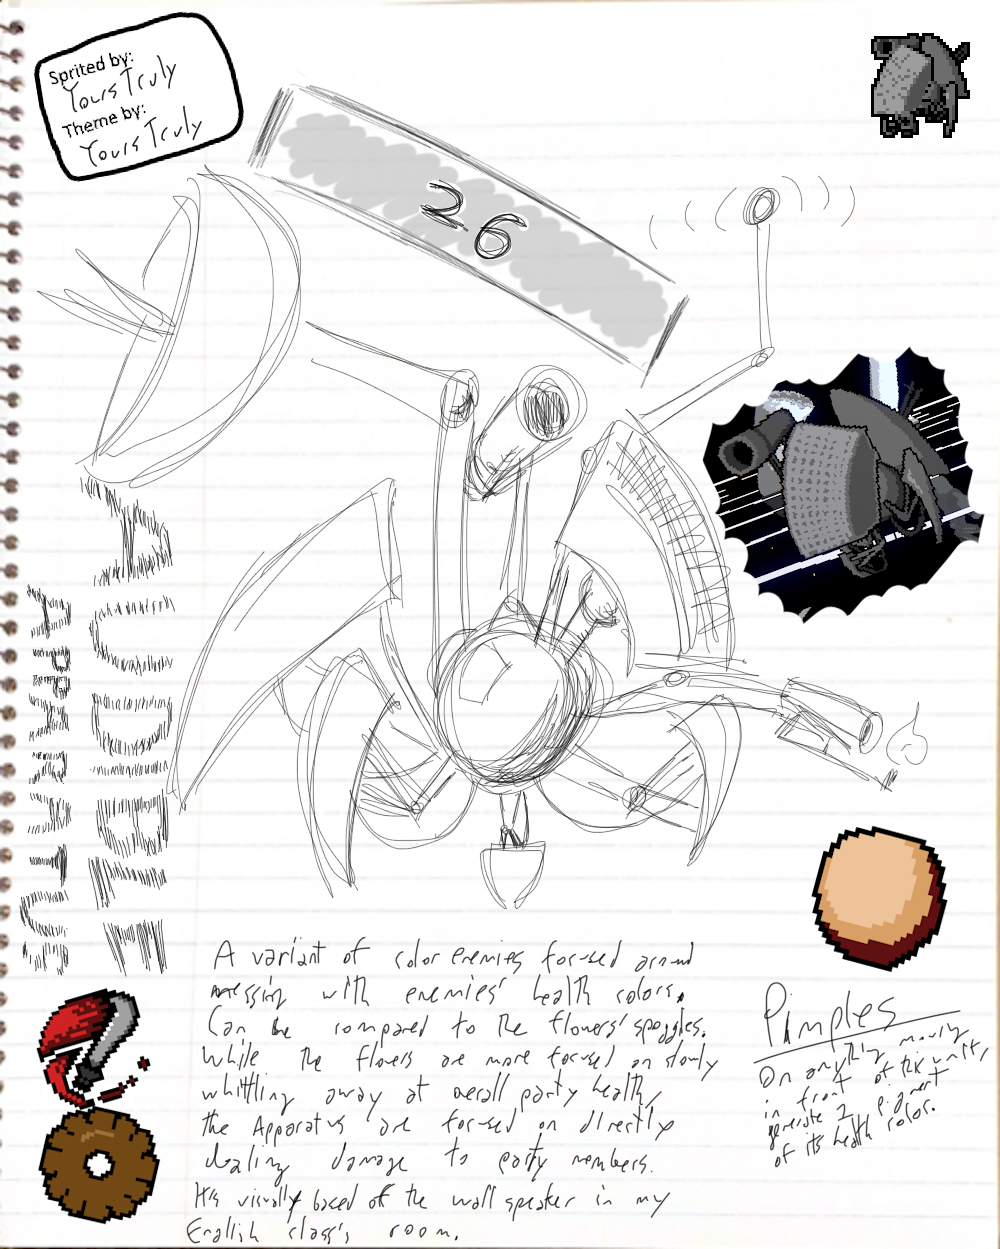 Sprited by:
Yours Truly
Theme by:
Yours Truly
26
APPARATUS
A variant of color enemies focused around
messing with enemies' health colors.
Can be compared to the flowers' spoggles.
While the flowers are more focused on slowly
whittling away at overall party health,
the Apparatus are focused on directly
dealing damage to party members.
It's visually based off the wall speaker in my
English class's room.
Pimples
On anything moving
in front of this unit,
generate 2 pigment
of its health color.